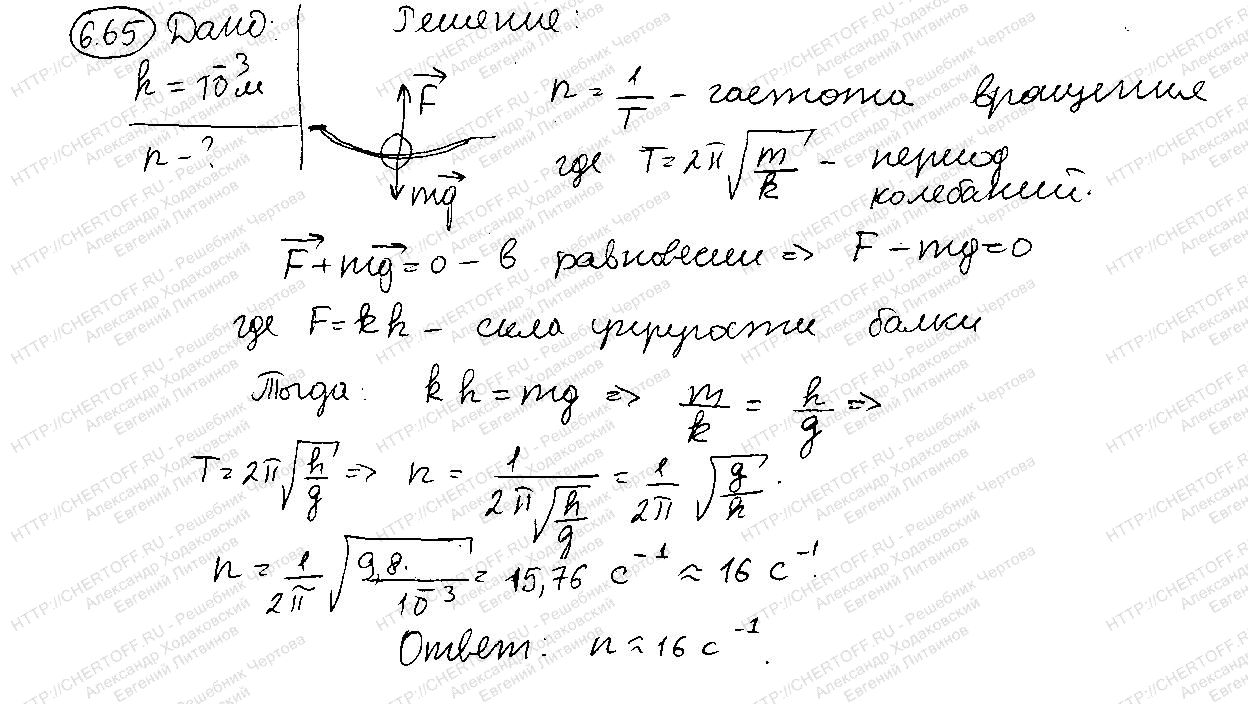 6.65 Дано: Решение:
h = 10⁻³ м
n - ?
F⃗
mg⃗
n = 1/T - частота вращения
где T = 2π√(m/k) - период колебаний.
F⃗ + mg⃗ = 0 - в равновесии => F - mg = 0
где F = kh - сила упругости балки
Тогда: kh = mg => m/k = h/g =>
T = 2π√(h/g) => n = 1/(2π√(h/g)) = 1/2π √(g/h).
n = 1/2π √(9,8/10⁻³) = 15,76 с⁻¹ ≈ 16 с⁻¹.
Ответ: n ≈ 16 с⁻¹.
HTTP://CHERTOFF.RU - Решебник Чертова
Александр Ходаковский
Евгений Литвинов